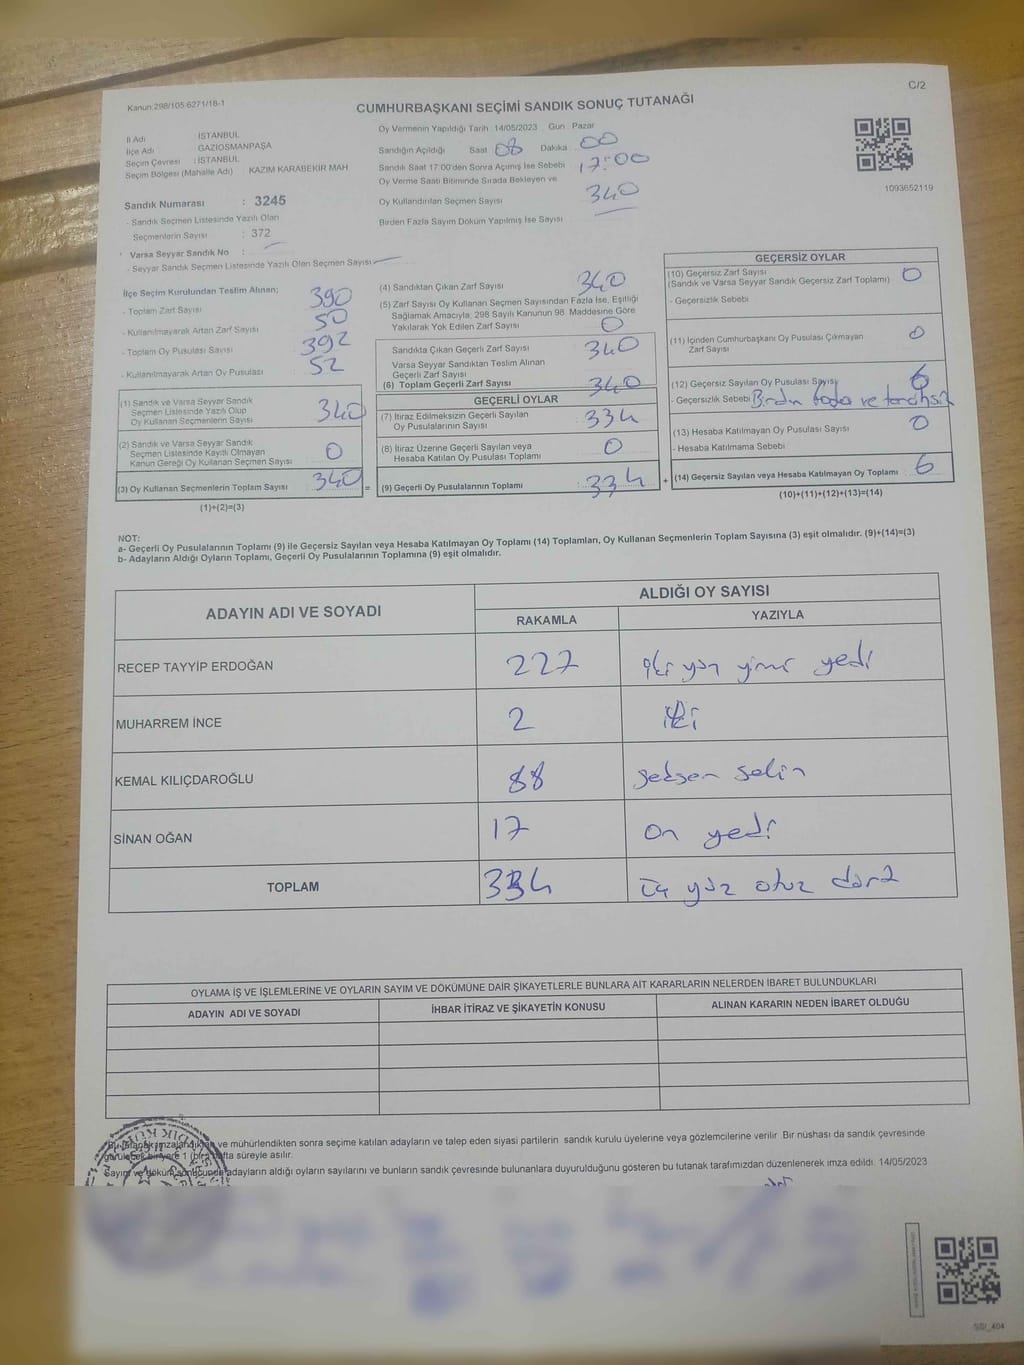 C/2
Kanun:298/105-6271/18-1
CUMHURBAŞKANI SEÇİMİ SANDIK SONUÇ TUTANAĞI
İl Adı : İSTANBUL
İlçe Adı GAZİOSMANPAŞA
Seçim Çevresi : İSTANBUL
Seçim Bölgesi (Mahalle Adı) KAZIM KARABEKİR MAH
Oy Vermenin Yapıldığı Tarih 14/05/2023 Gün : Pazar
Sandığın Açıldığı Saat 08 Dakika : 00
Sandık Saat 17:00'den Sonra Açılmış İse Sebebi 17:00
Oy Verme Saati Bitiminde Sırada Bekleyen ve
Oy Kullandırılan Seçmen Sayısı 340
Birden Fazla Sayım Döküm Yapılmış İse Sayısı
1093652119
Sandık Numarası : 3245
- Sandık Seçmen Listesinde Yazılı Olan
Seçmenlerin Sayısı : 372
Varsa Seyyar Sandık No :
- Seyyar Sandık Seçmen Listesinde Yazılı Olan Seçmen Sayısı
İlçe Seçim Kurulundan Teslim Alınan;
- Toplam Zarf Sayısı 390
- Kullanılmayarak Artan Zarf Sayısı 50
- Toplam Oy Pusulası Sayısı 392
- Kullanılmayarak Artan Oy Pusulası 52
(1) Sandık ve Varsa Seyyar Sandık
Seçmen Listesinde Yazılı Olup
Oy Kullanan Seçmenlerin Sayısı 340
(2) Sandık ve Varsa Seyyar Sandık
Seçmen Listesinde Kayıtlı Olmayan
Kanun Gereği Oy Kullanan Seçmen Sayısı 0
(3) Oy Kullanan Seçmenlerin Toplam Sayısı 340 =
(1)+(2)=(3)
(4) Sandıktan Çıkan Zarf Sayısı 340
(5) Zarf Sayısı Oy Kullanan Seçmen Sayısından Fazla İse, Eşitliği
Sağlamak Amacıyla, 298 Sayılı Kanunun 98. Maddesine Göre
Yakılarak Yok Edilen Zarf Sayısı 0
Sandıkta Çıkan Geçerli Zarf Sayısı 340
Varsa Seyyar Sandıktan Teslim Alınan
Geçerli Zarf Sayısı
(6) Toplam Geçerli Zarf Sayısı 340
GEÇERLİ OYLAR
(7) İtiraz Edilmeksizin Geçerli Sayılan
Oy Pusulalarının Sayısı 334
(8) İtiraz Üzerine Geçerli Sayılan veya
Hesaba Katılan Oy Pusulası Toplamı 0
(9) Geçerli Oy Pusulalarının Toplamı : 334 +
GEÇERSİZ OYLAR
(10) Geçersiz Zarf Sayısı
(Sandık ve Varsa Seyyar Sandık Geçersiz Zarf Toplamı) 0
- Geçersizlik Sebebi
(11) İçinden Cumhurbaşkanı Oy Pusulası Çıkmayan
Zarf Sayısı 0
(12) Geçersiz Sayılan Oy Pusulası Sayısı 6
- Geçersizlik Sebebi Birden fazla ve
(13) Hesaba Katılmayan Oy Pusulası Sayısı 0
- Hesaba Katılmama Sebebi
(14) Geçersiz Sayılan veya Hesaba Katılmayan Oy Toplamı 6
(10)+(11)+(12)+(13)=(14)
NOT:
a- Geçerli Oy Pusulalarının Toplamı (9) ile Geçersiz Sayılan veya Hesaba Katılmayan Oy Toplamı (14) Toplamları, Oy Kullanan Seçmenlerin Toplam Sayısına (3) eşit olmalıdır. (9)+(14)=(3)
b- Adayların Aldığı Oyların Toplamı, Geçerli Oy Pusulalarının Toplamına (9) eşit olmalıdır.
ADAYIN ADI VE SOYADI ALDIĞI OY SAYISI
RAKAMLA YAZIYLA
RECEP TAYYİP ERDOĞAN 227 iki yüz yirmi yedi
MUHARREM İNCE 2 iki
KEMAL KILIÇDAROĞLU 88 seksen sekin
SİNAN OĞAN 17 on yedi
TOPLAM 334 üç yüz otuz dört
OYLAMA İŞ VE İŞLEMLERİNE VE OYLARIN SAYIM VE DÖKÜMÜNE DAİR ŞİKAYETLERLE BUNLARA AİT KARARLARIN NELERDEN İBARET BULUNDUKLARI
ADAYIN ADI VE SOYADI İHBAR İTİRAZ VE ŞİKAYETİN KONUSU ALINAN KARARIN NEDEN İBARET OLDUĞU
Bu tutanak imzalandıktan ve mühürlendikten sonra seçime katılan adayların ve talep eden siyasi partilerin sandık kurulu üyelerine veya gözlemcilerine verilir. Bir nüshası da sandık çevresinde
görülecek bir yere 1 (bir) hafta süreyle asılır.
Sayım ve döküm sonucunda adayların aldığı oyların sayılarını ve bunların sandık çevresinde bulunanlara duyurulduğunu gösteren bu tutanak tarafımızdan düzenlenerek imza edildi. 14/05/2023